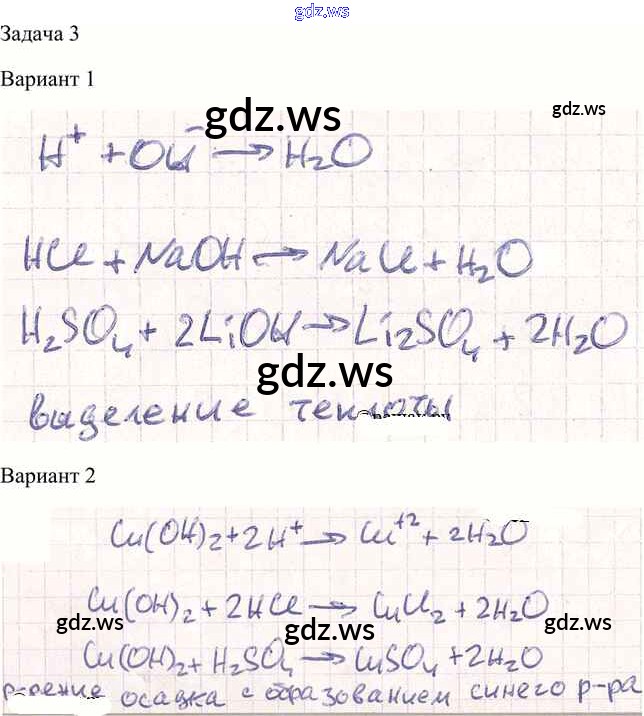 gdz.ws
Задача 3
Вариант 1
gdz.ws
gdz.ws
H⁺ + OH⁻ → H₂O
HCl + NaOH → NaCl + H₂O
H₂SO₄ + 2LiOH → Li₂SO₄ + 2H₂O
gdz.ws
выделение теплоты
Вариант 2
Cu(OH)₂ + 2H⁺ → Cu⁺² + 2H₂O
Cu(OH)₂ + 2HCl → CuCl₂ + 2H₂O
gdz.ws
gdz.ws
gdz.ws
Cu(OH)₂ + H₂SO₄ → CuSO₄ + 2H₂O
осадка с образованием синего р-ра